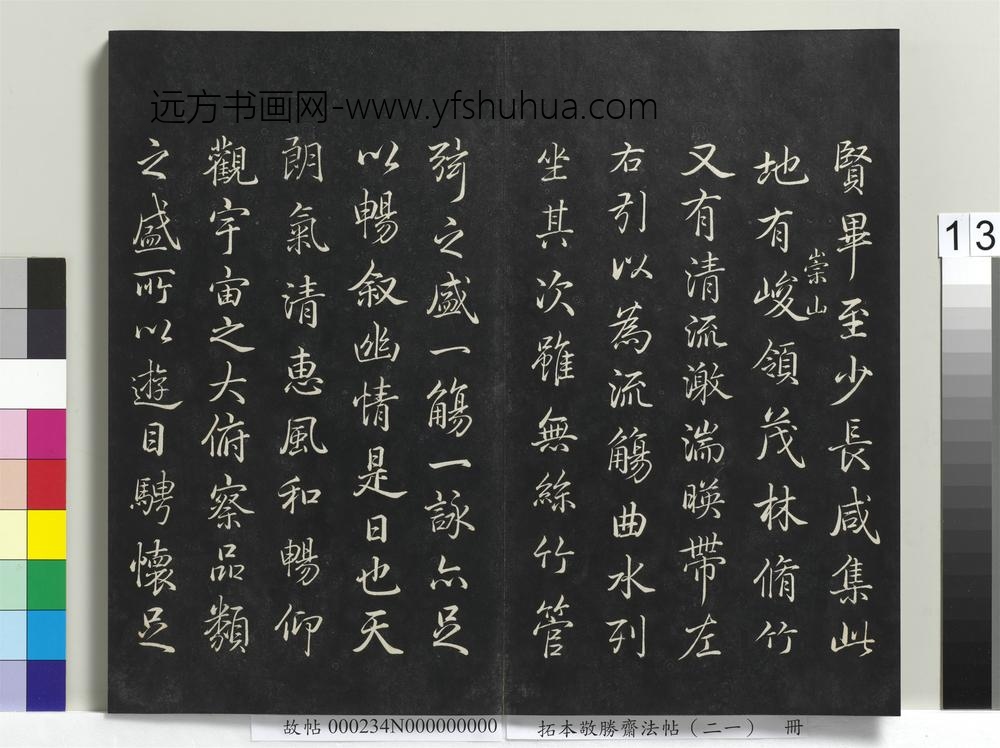 远方书画网-www.yfshuhua.com
賢畢至少長咸集此
地有崇山峻領茂林脩竹
又有清流激湍暎帶左
右引以為流觴曲水列
坐其次雖無絲竹管
弦之盛一觴一詠亦足
以暢叙幽情是日也天
朗氣清惠風和暢仰
觀宇宙之大俯察品類
之盛所以遊目騁懷足
13
故帖 000234N000000000
拓本敬勝齋法帖（二一） 冊